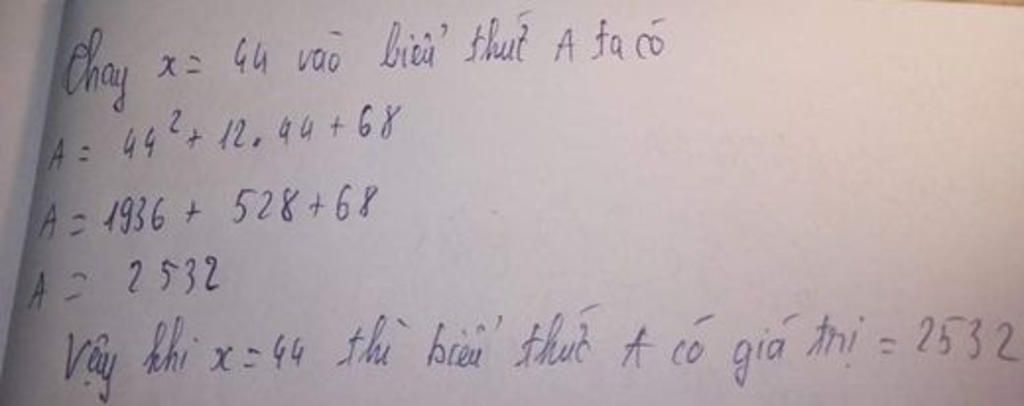 Thay x = 44 vào biểu thức A ta có
A = 44² + 12.44 + 68
A = 1936 + 528 + 68
A = 2532
Vậy khi x = 44 thì biểu thức A có giá trị = 2532